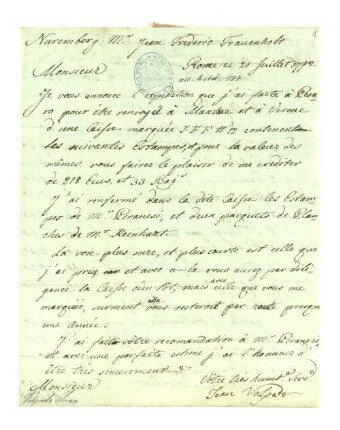 Nuremberg Mr. Jean Frederic Frauenholt
Rome ce 21 Juillet 1792
Monsieur
Je vous annonce l'expedition que j'ai faite à
pour être renvoyé à et à Verone
d'une Caisse marquée J.F.F. N. 12 contenent
les suivantes Estampes, pour la valeur des
mêmes vous fairez le plaisir de me crediter
de 218 Ecus, et 33 Baj.
J'ai renfermé dans la dete Caisse les Estam-
pes de Mr. Piranesi, et deux pacquets de Plan-
ches de Mr. Reinhart.
La voie plus sure, et plus courte est celle que
j'ai et avec vous aurez par dili-
gence la Caisse bien tôt, mais avec celle que vous me
marquez, surement elle vous resteroit par route presqu
une Année.
J'ai faite vôtre recomandation à Mr. Piranesi,
et avec une parfaite estime j'ai l'honneur d
être très sincerement
Monsieur
Vôtre très humb. Serv.
Jean Volpato
Volpato Jean